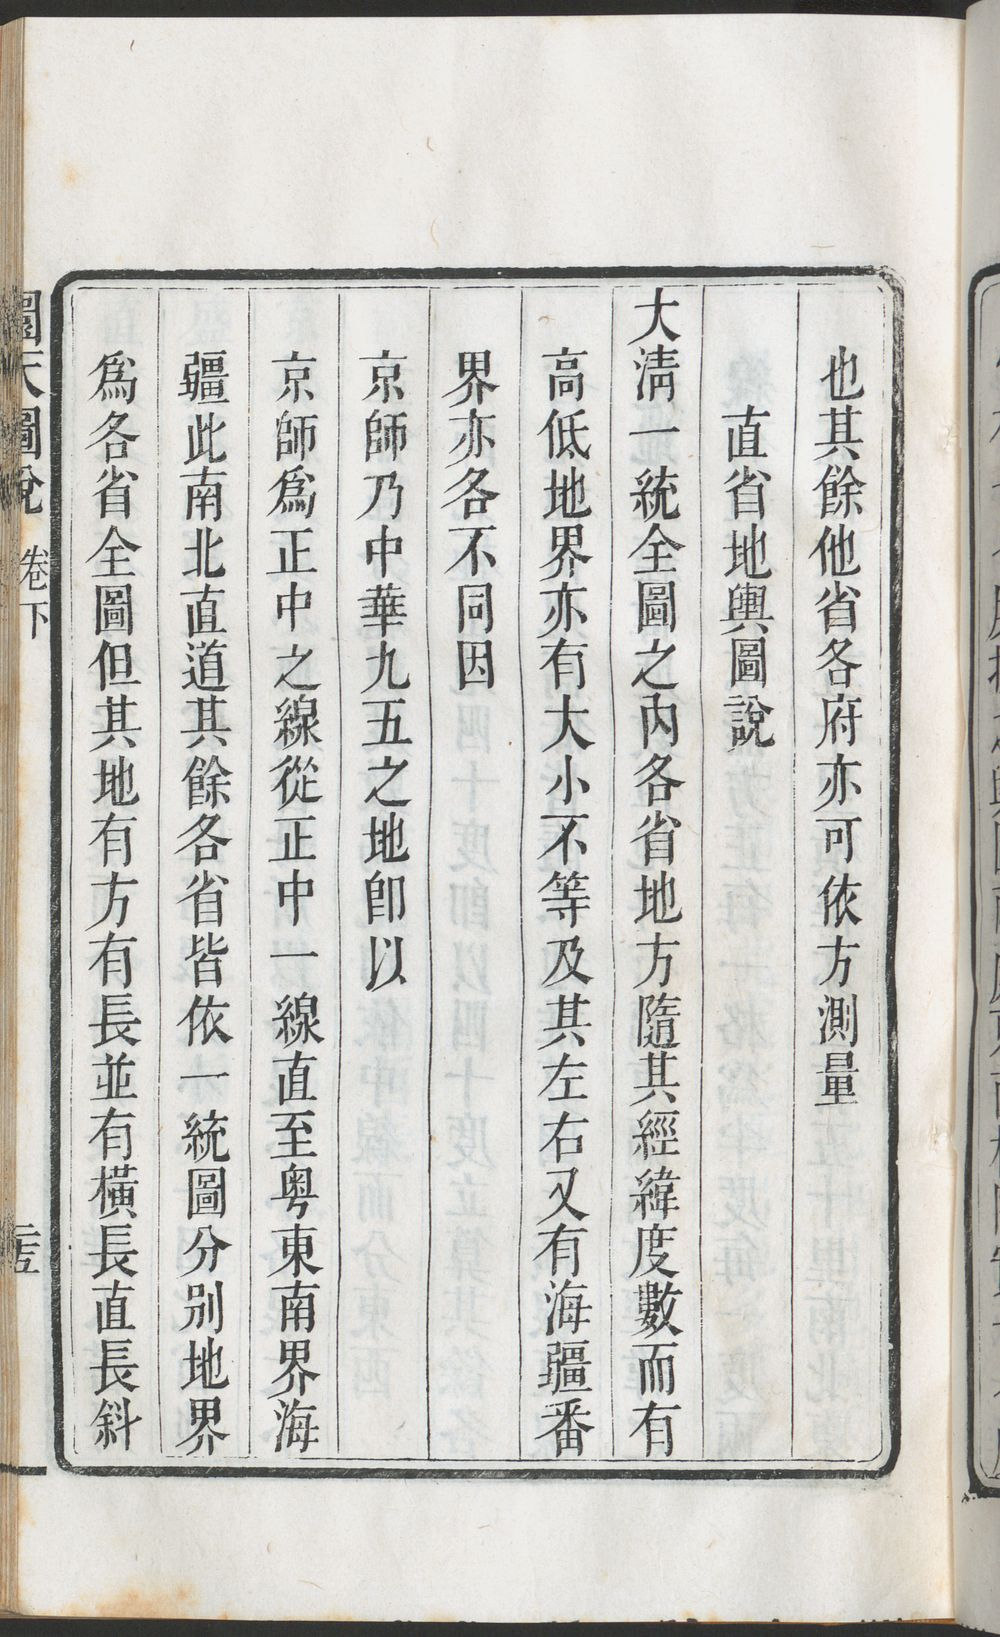 也其餘他省各府亦可依方測量
直省地輿圖說
大清一統全圖之內各省地方隨其經緯度數而有
高低地界亦有大小不等及其左右又有海疆番
界亦各不同因
京師乃中華九五之地卽以
京師爲正中之線從正中一線直至粤東南界海
疆此南北直道其餘各省皆依一統圖分別地界
爲各省全圖但其地有方有長並有橫長直長斜
圜天圖說 卷下